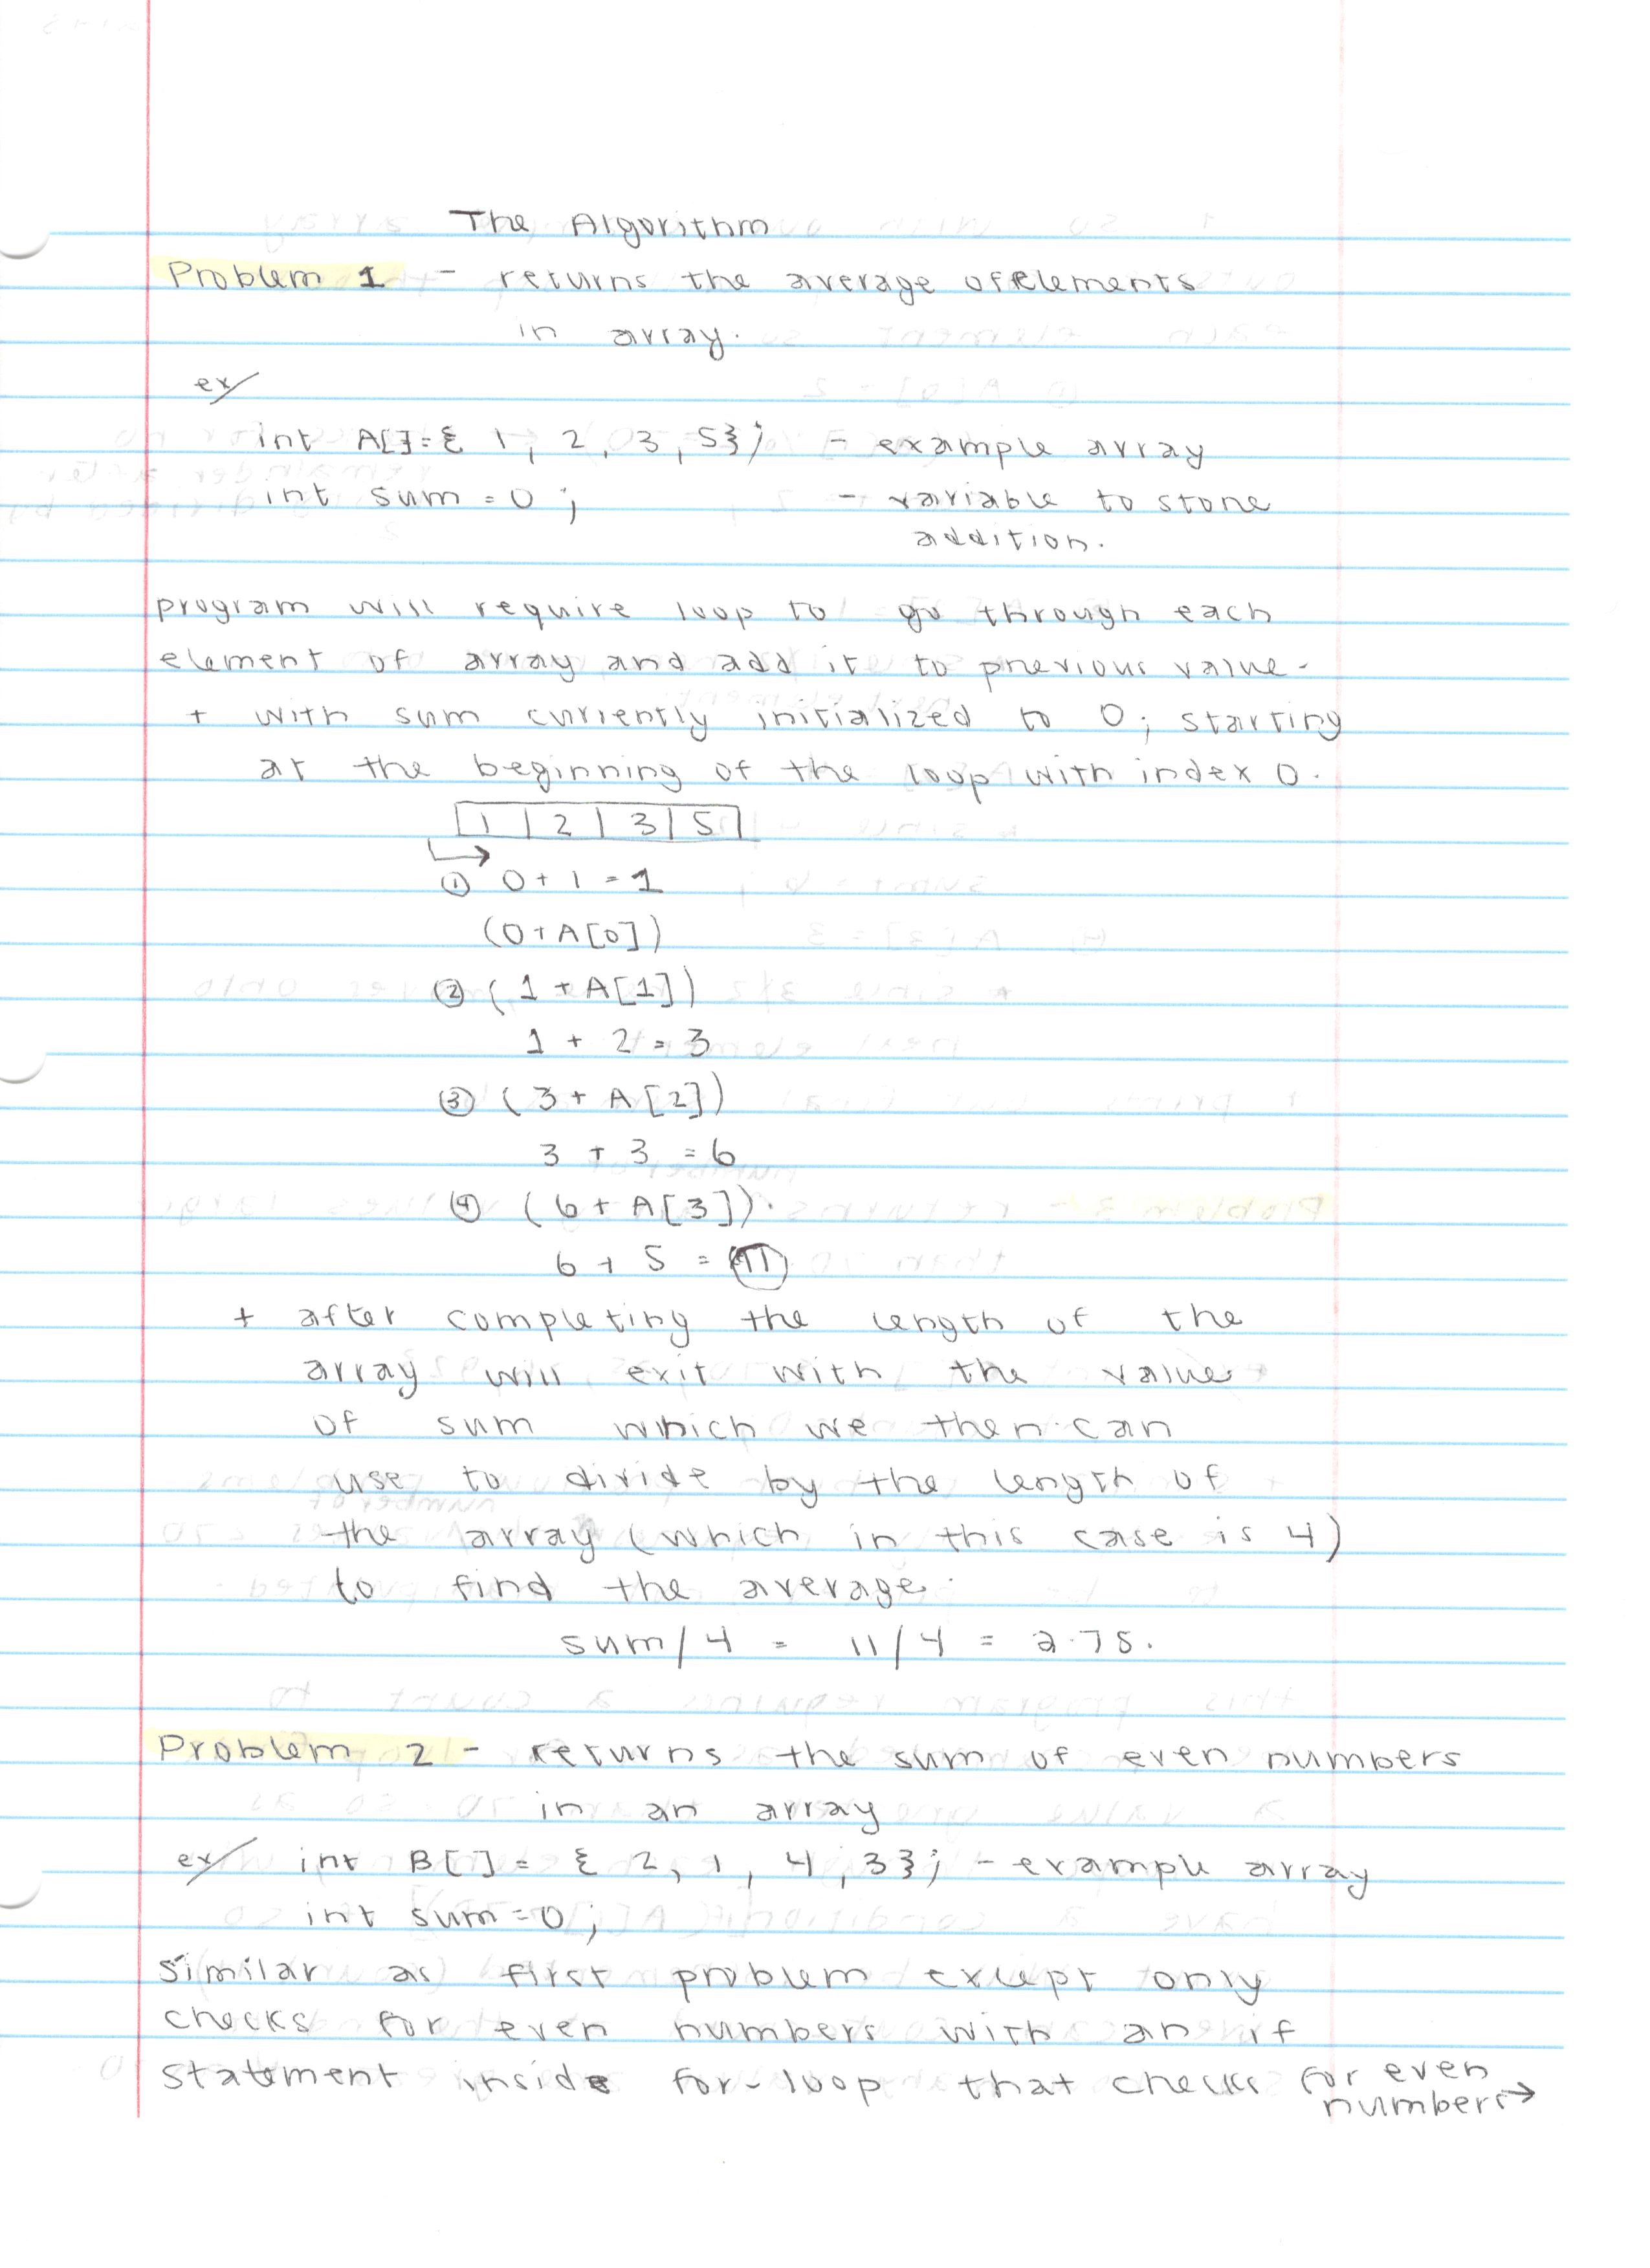 The Algorithm
Problem 1 - returns the average of elements
in array.
ex/
int A[] = { 1, 2, 3, 5}; - example array
int sum = 0; - variable to store
addition.
program will require loop to go through each
element of array and add it to previous value.
+ with sum currently initialized to 0; starting
at the beginning of the loop with index 0.
1 | 2 | 3 | 5
① 0 + 1 = 1
(0 + A[0])
② (1 + A[1])
1 + 2 = 3
③ (3 + A[2])
3 + 3 = 6
④ (6 + A[3]).
6 + 5 = 11
+ after completing the length of the
array will exit with the value
of sum which we then can
use to divide by the length of
the array (which in this case is 4)
to find the average.
sum/4 = 11/4 = 2.75.
Problem 2 - returns the sum of even numbers
in an array
ex/ int B[] = { 2, 1, 4, 3}; - example array
int sum = 0;
similar as first problem except only
checks for even numbers with an if
statement inside for-loop that checks for even
numbers →